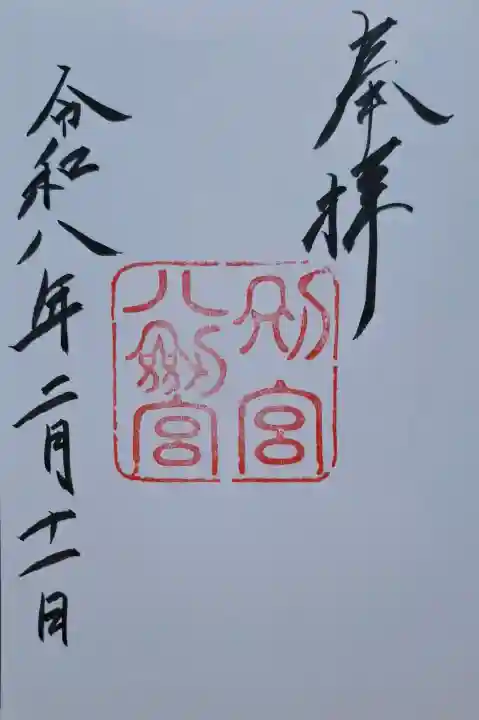 奉拝
別宮
八剱宮
令和八年二月十一日